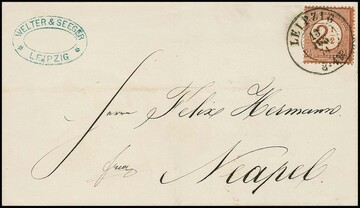 WELTER & SEEGER
LEIPZIG
LEIPZIG
Herrn Felix Hermann.
Neapel.